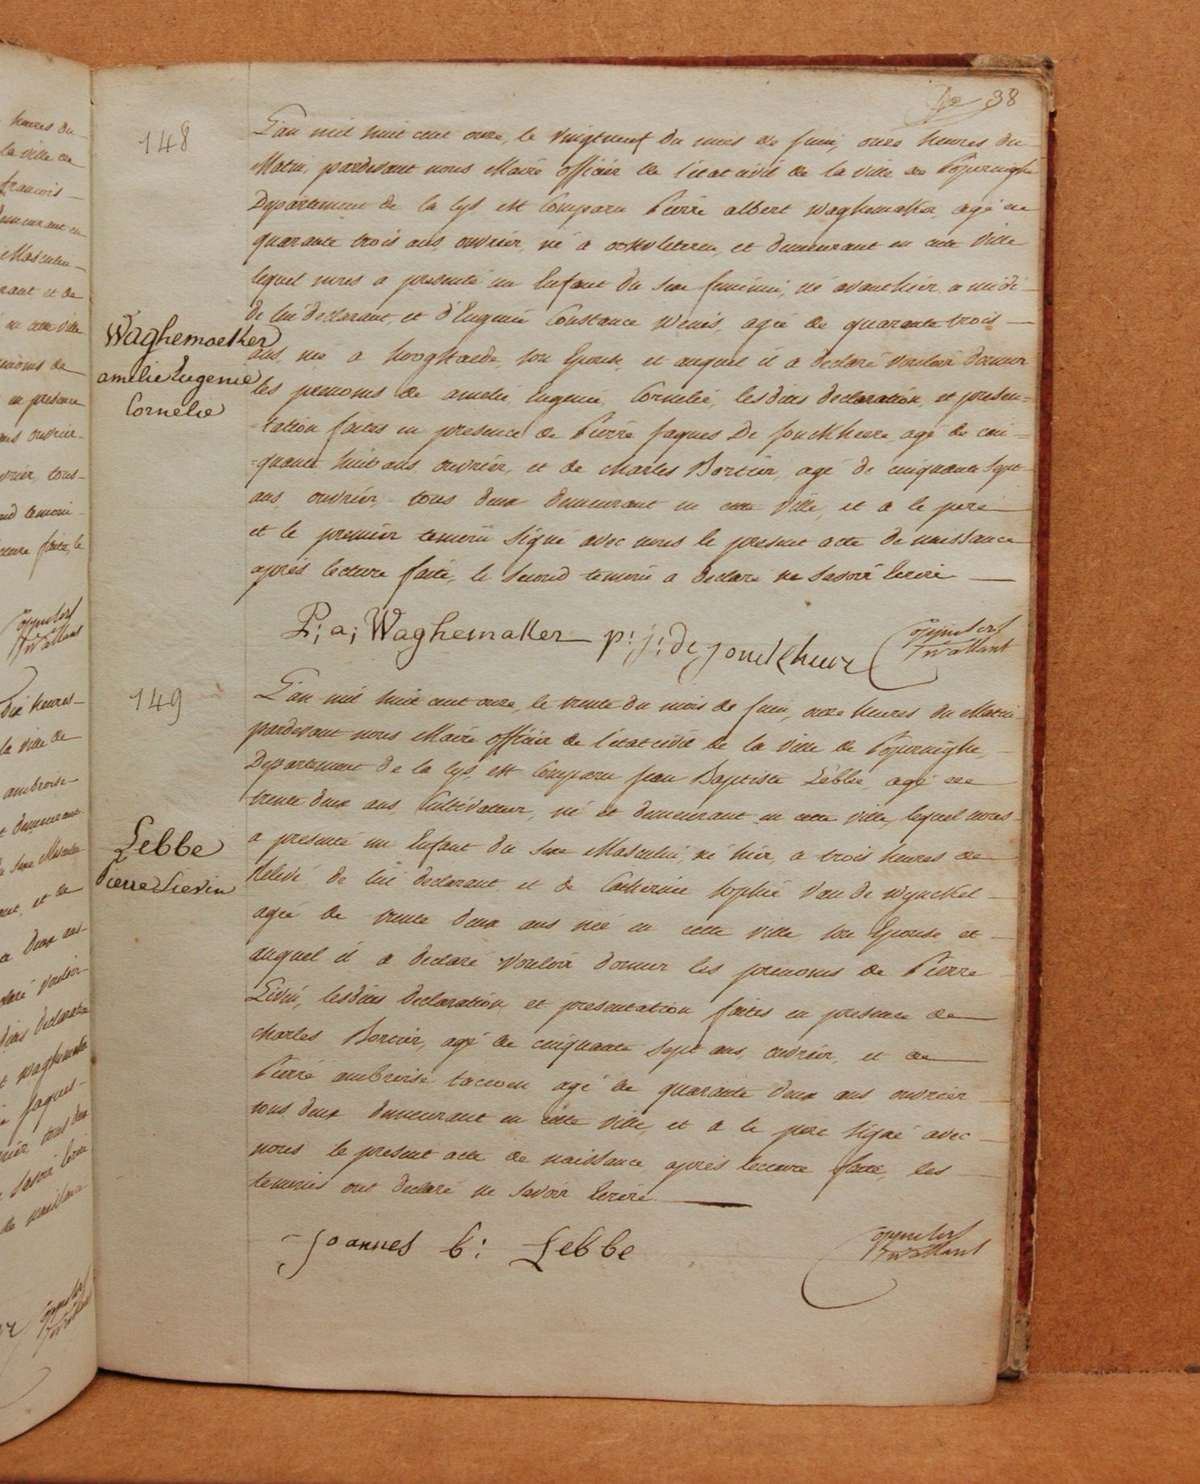 38
148
L'an mil huit cent onze, le vingtneuf du mois de Juin, onze heures du
Matin, pardevant nous Maire officier de l'état civil de la ville de Poperinghe
Departement de la Lys est Comparu Pierre albert Waghemaker agé de
quarante trois ans, ouvrier, né a oostvleteren et demeurant en cette Ville
lequel nous a presenté un Enfant du sexe feminin, né avanthier a midi
de lui declarant, et d'Eugenie Constance agée de quarante trois
ans, née a hooghstaede, son Epouse, et auquel il a declaré vouloir donner
les prenoms de amelie Eugenie Cornelie, lesdites declaration et presen=
=tation faites en presence de Pierre Jaques De Jonckheere agé de cin=
=quante huit ans, ouvrier, et de charles Bortier, agé de cinquante sept
ans, ouvrier, tous deux demeurant en cette Ville, et a le pere
et le premier temoin signé avec nous le present acte de naissance
après lecture faite, le second temoin a declaré ne savoir Ecrire
Waghemaeker
amelie Eugenie
Cornelie
P: a; Waghemaker p: j: de jonckheere
149
L'an mil huit cent onze, le trente du mois de Juin, onze heures du Matin
pardevant nous Maire officier de l'état civil de la Ville de Poperinghe,
Departement de la Lys, est Comparu Jean Baptiste Lebbe, agé de
trente deux ans, Cultivateur, né et demeurant en cette ville, lequel nous
a presenté un Enfant du sexe Masculin, né hier, a trois heures de
relevé, de lui declarant et de Catherine Sophie Van de Wynckel
agée de trente deux ans née en cette ville son Epouse et
auquel il a declaré vouloir donner les prenoms de Pierre
Livin, lesdites declaration et presentation faites en presence de
charles Bortier, agé de cinquante sept ans, ouvrier, et de
Pierre ambroise taccoen agé de quarante deux ans ouvrier
tous deux demeurant en cette ville, et a le pere signé avec
nous le present acte de naissance, après lecture faite, les
temoins ont declaré ne savoir Ecrire
Lebbe
Pierre Lievin
Joannes b: Lebbe